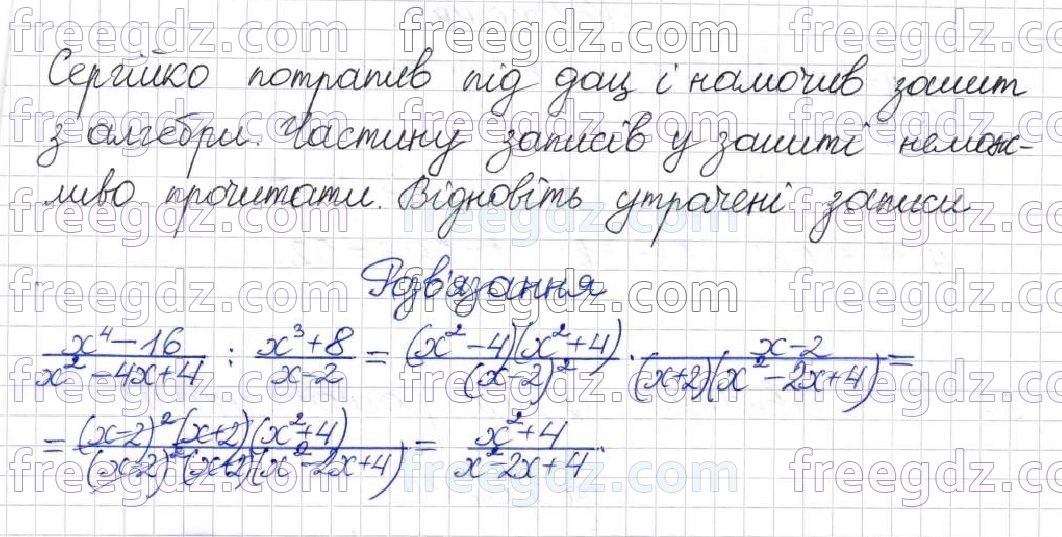 freegdz.com freegdz.com freegdz.com
Сергійко потрапив під дощ і намочив зошит
з алгебри. Частину записів у зошиті немож-
ливо прочитати. Відновіть утрачені записи
Розв'язання
x⁴-16 / x²-4x+4 : x³+8 / x-2 = (x²-4)(x²+4) / (x-2)² · x-2 / (x+2)(x²-2x+4) =
= (x-2)²(x+2)(x²+4) / (x-2)²(x+2)(x²-2x+4) = x²+4 / x²-2x+4.